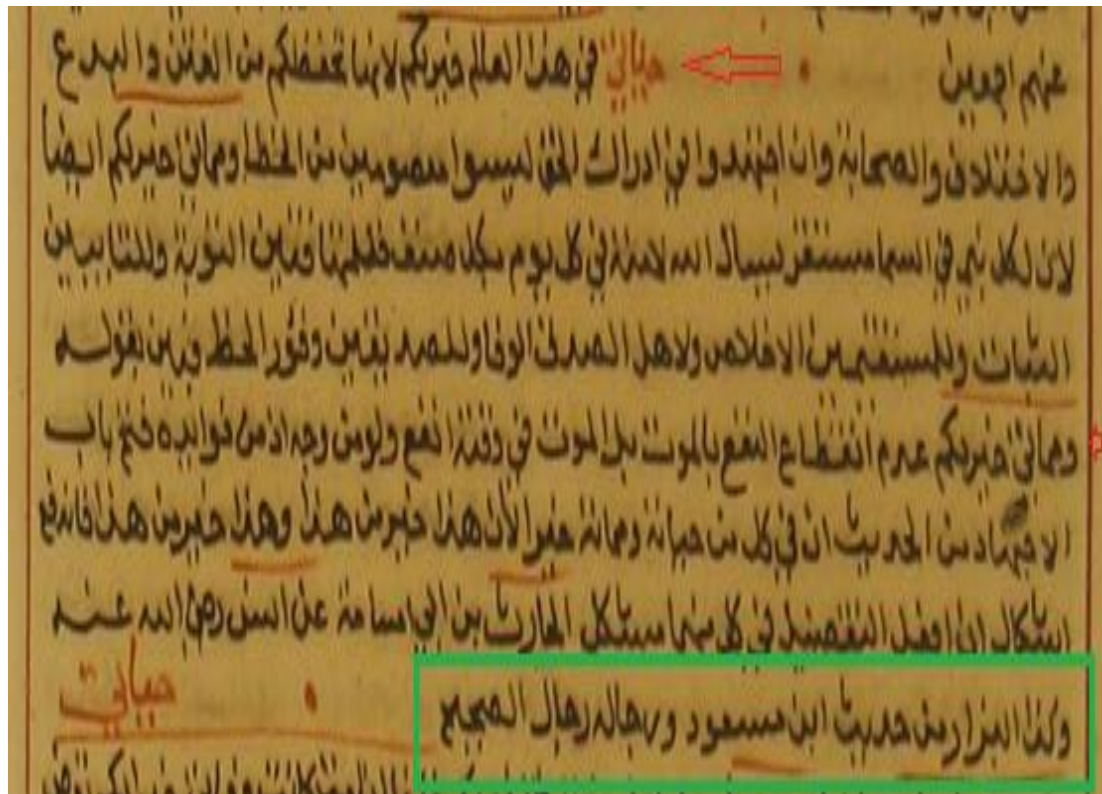 عنهم اجمعين • حياتي في هذا العالم خير لكم لانها تحفظكم من الفتن والبدع
والاختلاف والصحابة وان اجتهدوا في ادراك الحق ليسوا معصومين من الخطا ومماتي خير لكم ايضا
لان لكل نبي في السما مستقر يسال الله لامته في كل يوم لكل صنف فللمتافتين التوبة وللتايبين
الثبات وللمستقيمين الاخلاص ولاهل الصدق الوفا وللصديقين وفور الحظ وبين بقوله
ومماتي خير لكم عدم انقطاع النفع بالموت بل الموت في وقته انفع ولو من وجه اذ من فوايده فتح باب
الاجتهاد من الحديث ان في كل من حياته ومماته خيرا لان هذا خير من هذا وهذا خير من هذا فاندفع
استشكال ان افعل التفضيل في كل منهما مشكل الحارث بن ابي اسامة عن انس رضي الله عنه
وكذا البزار من حديث ابن مسعود ورجاله رجال الصحيح • حياتي